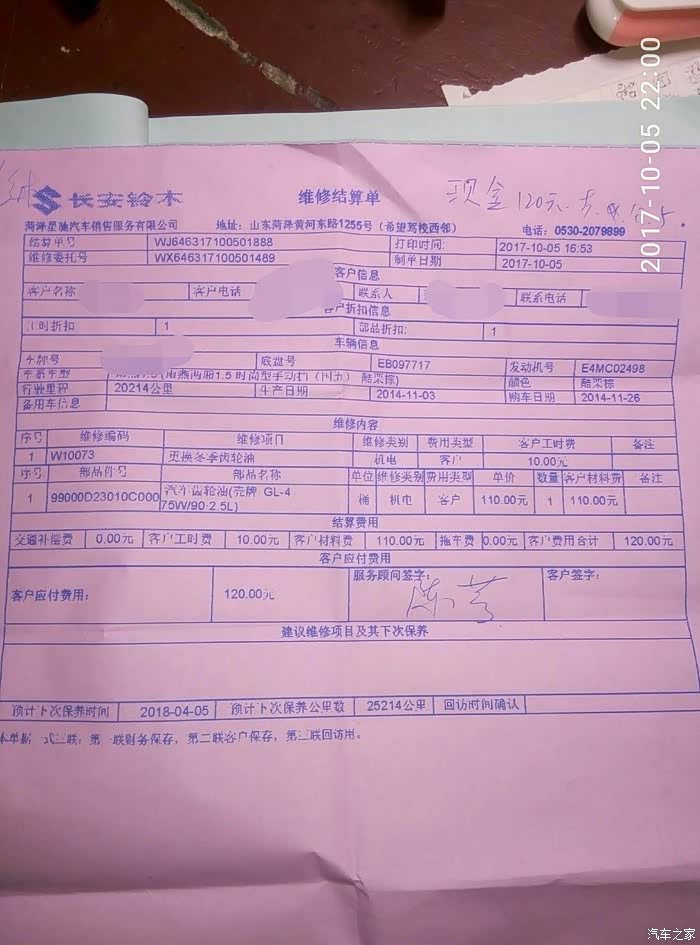 2017-10-05 22:00
长安铃木 维修结算单 现金120元
菏泽星驰汽车销售服务有限公司 地址：山东菏泽黄河东路1255号（希望驾校西邻） 电话：0530-2079899
结算单号 WJ646317100501888 打印时间: 2017-10-05 16:53
维修委托号 WX646317100501489 制单日期 2017-10-05
客户信息
客户名称 客户电话 联系人 联系电话
客户折扣信息
工时折扣 1 部品折扣: 1
车辆信息
车牌号 底盘号 EB097717 发动机号 E4MC02498
车系车型 两厢1.5 时尚型手动挡（国五） 酷栾棕) 颜色 酷栾棕
行驶里程 20214公里 生产日期 2014-11-03 购车日期 2014-11-26
备用车信息
维修内容
序号 维修编码 维修项目 维修类别 费用类型 客户工时费 备注
1 W10073 更换冬季齿轮油 机电 客户 10.00元
序号 部品件号 部品名称 单位 维修类别 费用类型 单价 数量 客户材料费 备注
1 99000D23010C000 汽车齿轮油(壳牌 GL-4 75W/90 2.5L) 桶 机电 客户 110.00元 1 110.00元
结算费用
交通补偿费 0.00元 客户工时费 10.00元 客户材料费 110.00元 拖车费 0.00元 客户费用合计 120.00元
客户应付费用
客户应付费用: 120.00元 服务顾问签字: 客户签字:
建议维修项目及其下次保养
预计下次保养时间 2018-04-05 预计下次保养公里数 25214公里 回访时间确认
本单据一式三联：第一联财务保存，第二联客户保存，第三联回访用。
汽车之家